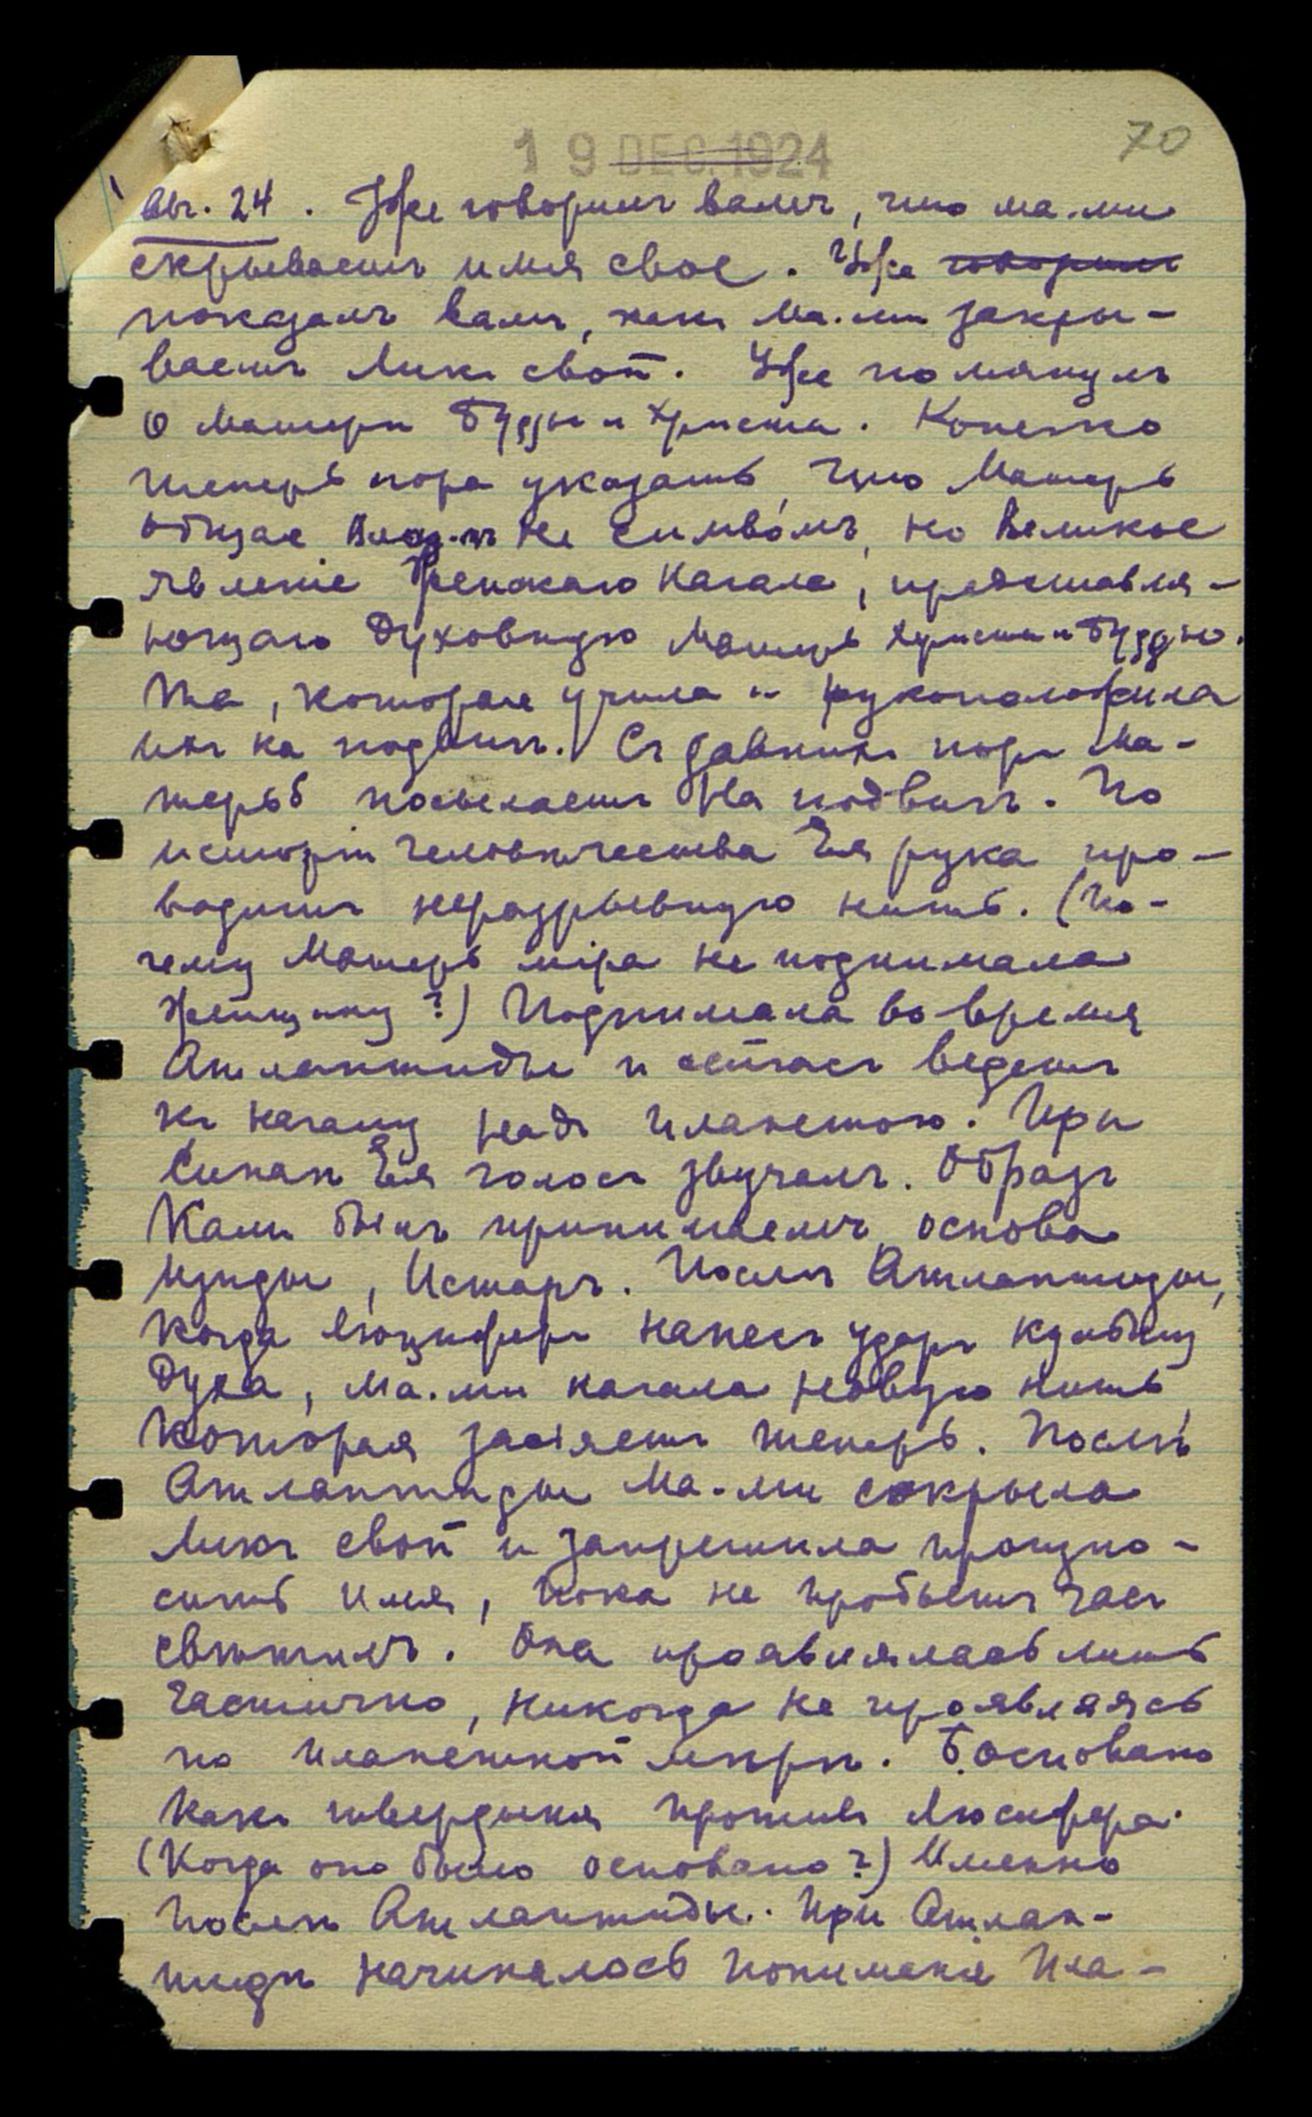 70
19 DEC. 1924
Авг. 24. Уже говорилъ вамъ, что Ма.ми
скрываетъ имя свое. Уже говорилъ
показалъ вамъ, какъ Ма.ми закры-
ваетъ Ликъ свой. Уже помянулъ
о Матери Будды и Христа. Конечно
теперь пора указать, что Матерь
общая Влад-тъ не символъ, но Великое
явленіе Женскаго Начала, представля-
ющаго Духовную Матерь Христа и Будды.
Та, которая учила и рукоположила
ихъ на подвигъ. Съ давнихъ поръ Ма-
терьб посылаетъ На подвигъ. По
исторіи человѣчества Ея рука про-
водитъ неразрывную нить. (По-
чему Матерь міра не поднимала
женщину?) Поднимала во время
Атлантиды и сейчасъ ведетъ
къ началу надъ планетою. При
Синаѣ Ея голосъ звучалъ. Образъ
Кали былъ принимаемъ основа
Изиды, Истаръ. Послѣ Атлантиды,
когда Люциферъ нанесъ ударъ культу
Духа, Ма.ми начала новую нить
которая засіяетъ теперь. Послѣ
Атлантиды Ма.ми сокрыла
Ликъ свой и запретила произно-
сить имя, пока не пробьетъ часъ
свѣтилъ. Она проявлялась лишь
частично, никогда не проявляясь
по планетной мѣрѣ. Б. основано
какъ твердыня противъ Люсифера.
(Когда оно было основано?) Именно
послѣ Атлантиды. При Атлан-
тидѣ начиналось пониманіе Пла-